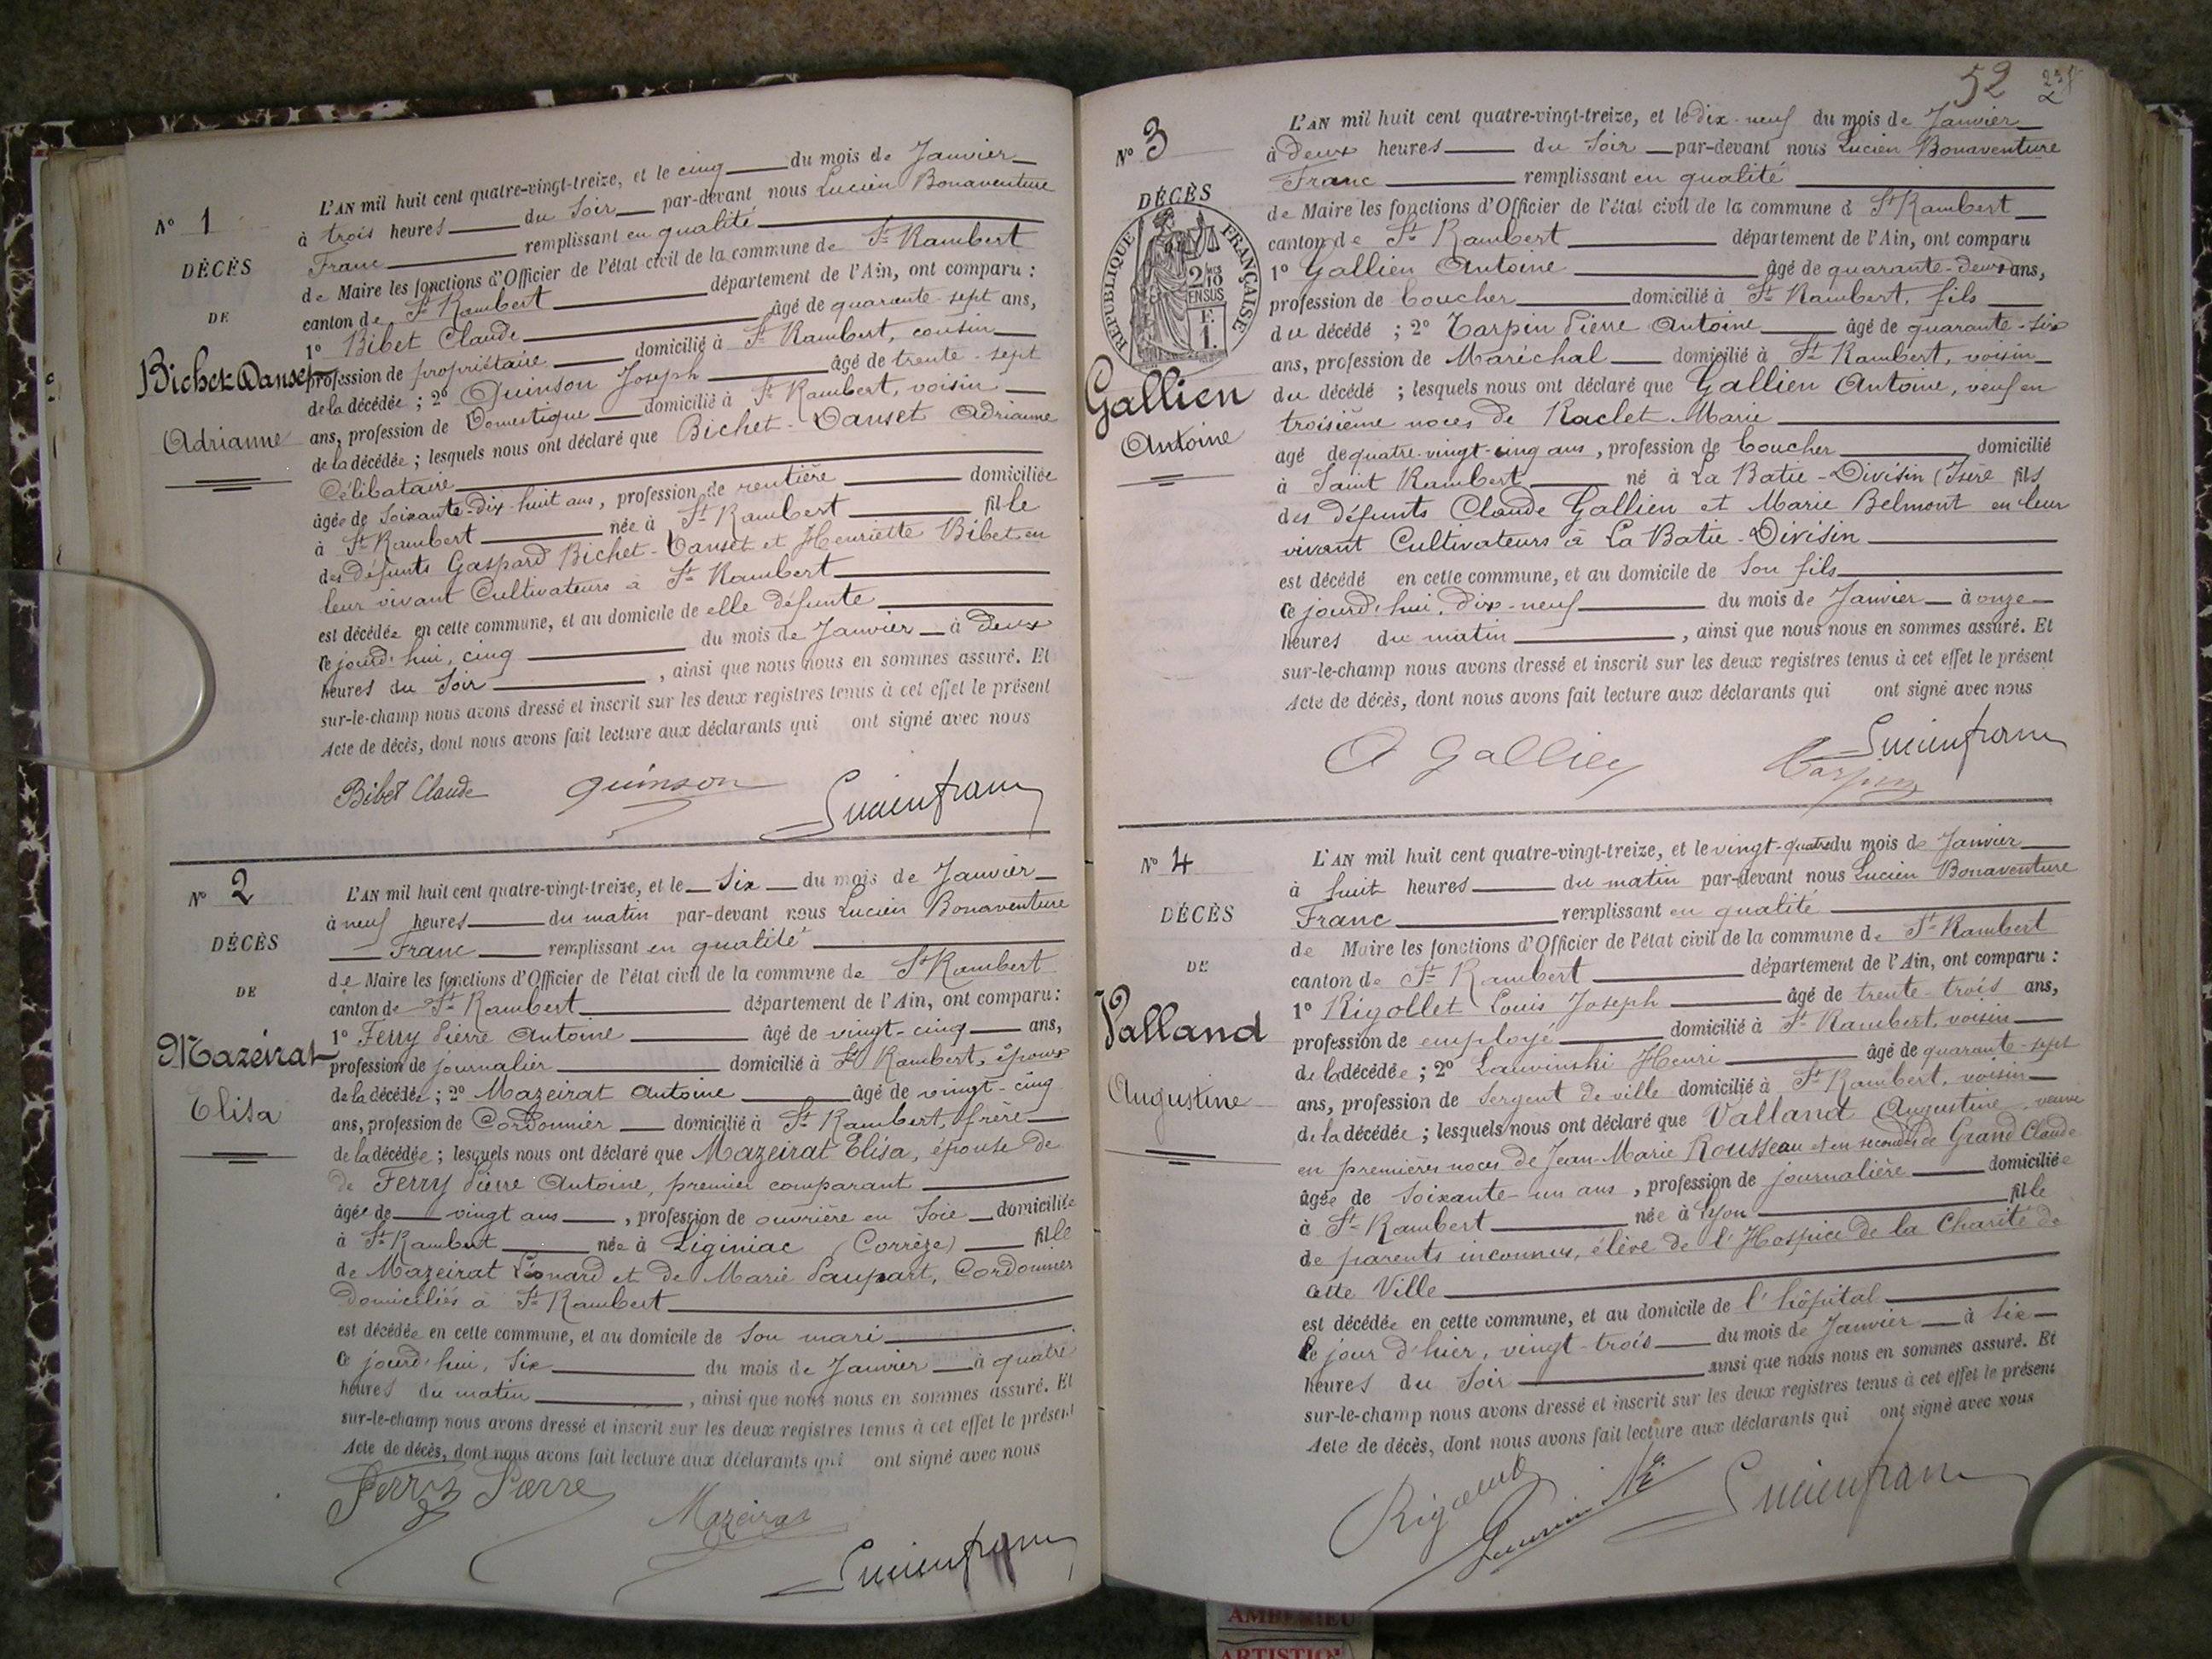 N° 1
DÉCÈS
DE
Bichet-Danset
Adrianne
L'AN mil huit cent quatre-vingt-treize, et le cinq du mois de Janvier
à trois heures du Soir par-devant nous Lucien Bonaventure
Franc remplissant en qualité
de Maire les fonctions d'Officier de l'état civil de la commune de St Rambert
canton de St Rambert département de l'Ain, ont comparu :
1° Bibet Claude âgé de quarante-sept ans,
profession de propriétaire domicilié à St Rambert, cousin
de la décédée ; 2° Quinson Joseph âgé de trente-sept
ans, profession de Domestique domicilié à St Rambert, voisin
de la décédée ; lesquels nous ont déclaré que Bichet-Danset Adrianne
Célibataire
âgée de soixante-dix-huit ans, profession de rentière domiciliée
à St Rambert née à St Rambert fille
des défunts Gaspard Bichet-Danset et Henriette Bibet en
leur vivant Cultivateurs à St Rambert
est décédée en cette commune, et au domicile de elle défunte
ce jourd'hui, cinq du mois de Janvier à deux
heures du Soir , ainsi que nous nous en sommes assuré. Et
sur-le-champ nous avons dressé et inscrit sur les deux registres tenus à cet effet le présent
Acte de décès, dont nous avons fait lecture aux déclarants qui ont signé avec nous
Bibet Claude quinson Lucien franc
N° 2
DÉCÈS
DE
Mazeirat
Elisa
L'AN mil huit cent quatre-vingt-treize, et le Six du mois de Janvier
à neuf heures du matin par-devant nous Lucien Bonaventure
Franc remplissant en qualité
de Maire les fonctions d'Officier de l'état civil de la commune de St Rambert
canton de St Rambert département de l'Ain, ont comparu :
1° Ferry Pierre Antoine âgé de vingt-cinq ans,
profession de journalier domicilié à St Rambert, époux
de la décédée ; 2° Mazeirat Antoine âgé de vingt-cinq
ans, profession de Cordonnier domicilié à St Rambert, frère
de la décédée ; lesquels nous ont déclaré que Mazeirat Elisa, épouse de
de Ferry Pierre Antoine, premier comparant
âgée de vingt ans , profession de ouvrière en Soie domiciliée
à St Rambert née à Liginiac (Corrèze) fille
de Mazeirat Léonard et de Marie Paupart, Cordonnier
domiciliés à St Rambert
est décédée en cette commune, et au domicile de son mari
Ce jourd'hui, Six du mois de Janvier à quatre
heures du matin , ainsi que nous nous en sommes assuré. Et
sur-le-champ nous avons dressé et inscrit sur les deux registres tenus à cet effet le présent
Acte de décès, dont nous avons fait lecture aux déclarants qui ont signé avec nous
Ferry Pierre Mazeirat
Lucien franc
52
N° 3
DÉCÈS
RÉPUBLIQUE FRANÇAISE
2/10
EN SUS
F.
1.
Gallien
Antoine
L'AN mil huit cent quatre-vingt-treize, et le dix-neuf du mois de Janvier
à deux heures du Soir par-devant nous Lucien Bonaventure
Franc remplissant en qualité
de Maire les fonctions d'Officier de l'état civil de la commune d St Rambert
canton de St Rambert département de l'Ain, ont comparu
1° Gallien Antoine âgé de quarante-deux ans,
profession de boucher domicilié à St Rambert, fils
du décédé ; 2° Tarpin Pierre Antoine âgé de quarante-six
ans, profession de Maréchal domicilié à St Rambert, voisin
du décédé ; lesquels nous ont déclaré que Gallien Antoine, veuf en
troisième noces de Raclet Marie
agé de quatre-vingt-cinq ans, profession de boucher domicilié
à Saint Rambert né à La Batie-Divisin (Isère fils
des défunts Claude Gallien et Marie Belmont en leur
vivant Cultivateurs à La Batie-Divisin
est décédé en cette commune, et au domicile de Son fils
Ce jourd'hui, dix-neuf du mois de Janvier à onze
heures du matin , ainsi que nous nous en sommes assuré. Et
sur-le-champ nous avons dressé et inscrit sur les deux registres tenus à cet effet le présent
Acte de décès, dont nous avons fait lecture aux déclarants qui ont signé avec nous
A Gallien Tarpin Lucien franc
N° 4
DÉCÈS
DE
Valland
Augustine
L'AN mil huit cent quatre-vingt-treize, et le vingt-quatre du mois de Janvier
à huit heures du matin par-devant nous Lucien Bonaventure
Franc remplissant en qualité
de Maire les fonctions d'Officier de l'état civil de la commune de St Rambert
canton de St Rambert département de l'Ain, ont comparu :
1° Rigollet Louis Joseph âgé de trente-trois ans,
profession de employé domicilié à St Rambert, voisin
de la décédée ; 2° Lauvinski Henri âgé de quarante-sept
ans, profession de Sergent de ville domicilié à St Rambert, voisin
de la décédée ; lesquels nous ont déclaré que Valland Augustine, veuve
en premières noces de Jean-Marie Rousseau et en secondes de Grand Claude
âgée de Soixante-un ans , profession de journalière domiciliée
à St Rambert née à Lyon fille
de parents inconnus, élève de l'Hospice de la Charité de
cette Ville
est décédée en cette commune, et au domicile de l'hôpital
Le jour d'hier, vingt-trois du mois de Janvier à six
heures du Soir ainsi que nous nous en sommes assuré. Et
sur-le-champ nous avons dressé et inscrit sur les deux registres tenus à cet effet le présent
Acte de décès, dont nous avons fait lecture aux déclarants qui ont signé avec nous
Lucien franc
AMBERIEU
ARTISTION